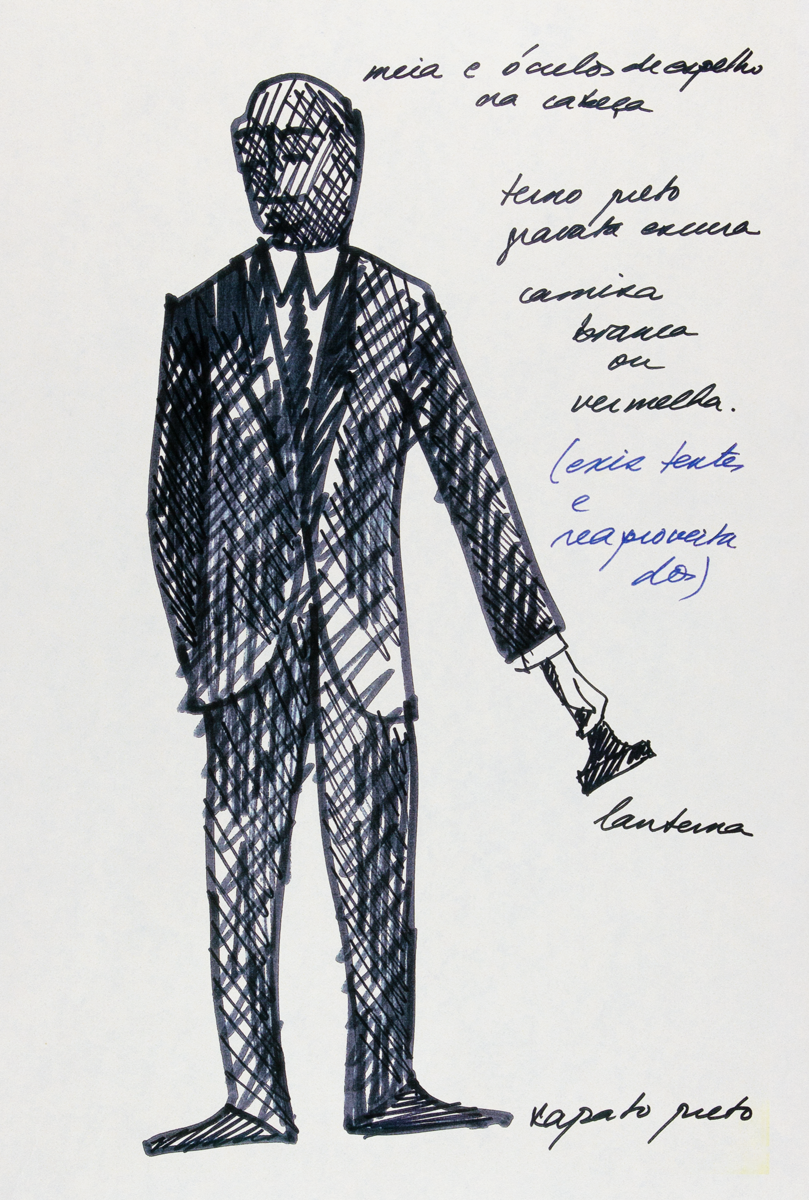 meia e óculos de espelho
na cabeça
terno preto
gravata escura
camisa
branca
ou
vermelha.
(exis tentes
e
reaproveita
dos)
lanterna
xapato preto